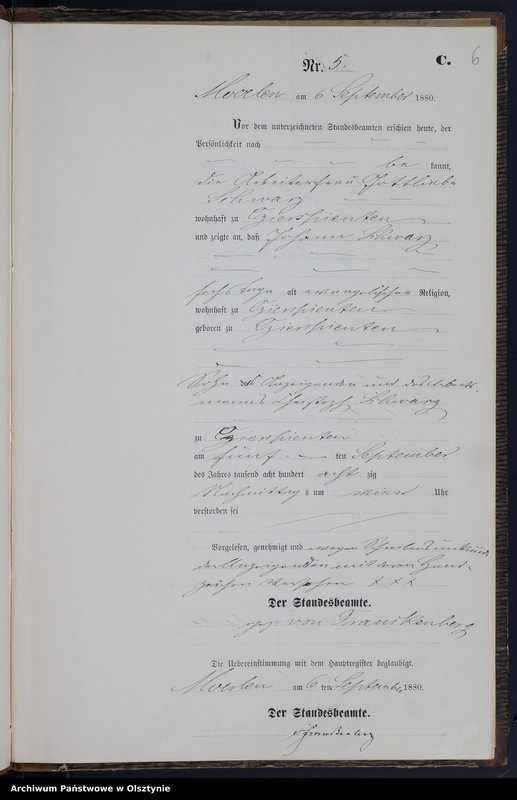 Nr. 5.
C. 6
Moerlen am 6 September 1880.
Vor dem unterzeichneten Standesbeamten erschien heute, der
Persönlichkeit nach
be kannt,
die Arbeiterfrau Gottliebe
Schwarz
wohnhaft zu Czierspienten
und zeigte an, daß Johann Schwarz
sechs Tage alt evangelischer Religion,
wohnhaft zu Czierspienten
geboren zu Czierspienten
Sohn der Anzeigenden und des Arbeits-
mannes Christoph Schwarz
zu Czierspienten
am fünf ten September
des Jahres tausend acht hundert acht zig
Nachmittag s um Uhr
verstorben sei
Vorgelesen, genehmigt und wegen Schreibensunkunde
der Anzeigenden mit deren Hand-
zeichen versehen X X X
Der Standesbeamte.
gez. von Frankenberg
Die Uebereinstimmung mit dem Hauptregister beglaubigt.
Moerlen am 6 ten September 1880.
Der Standesbeamte.
vFrankenberg
Archiwum Państwowe w Olsztynie